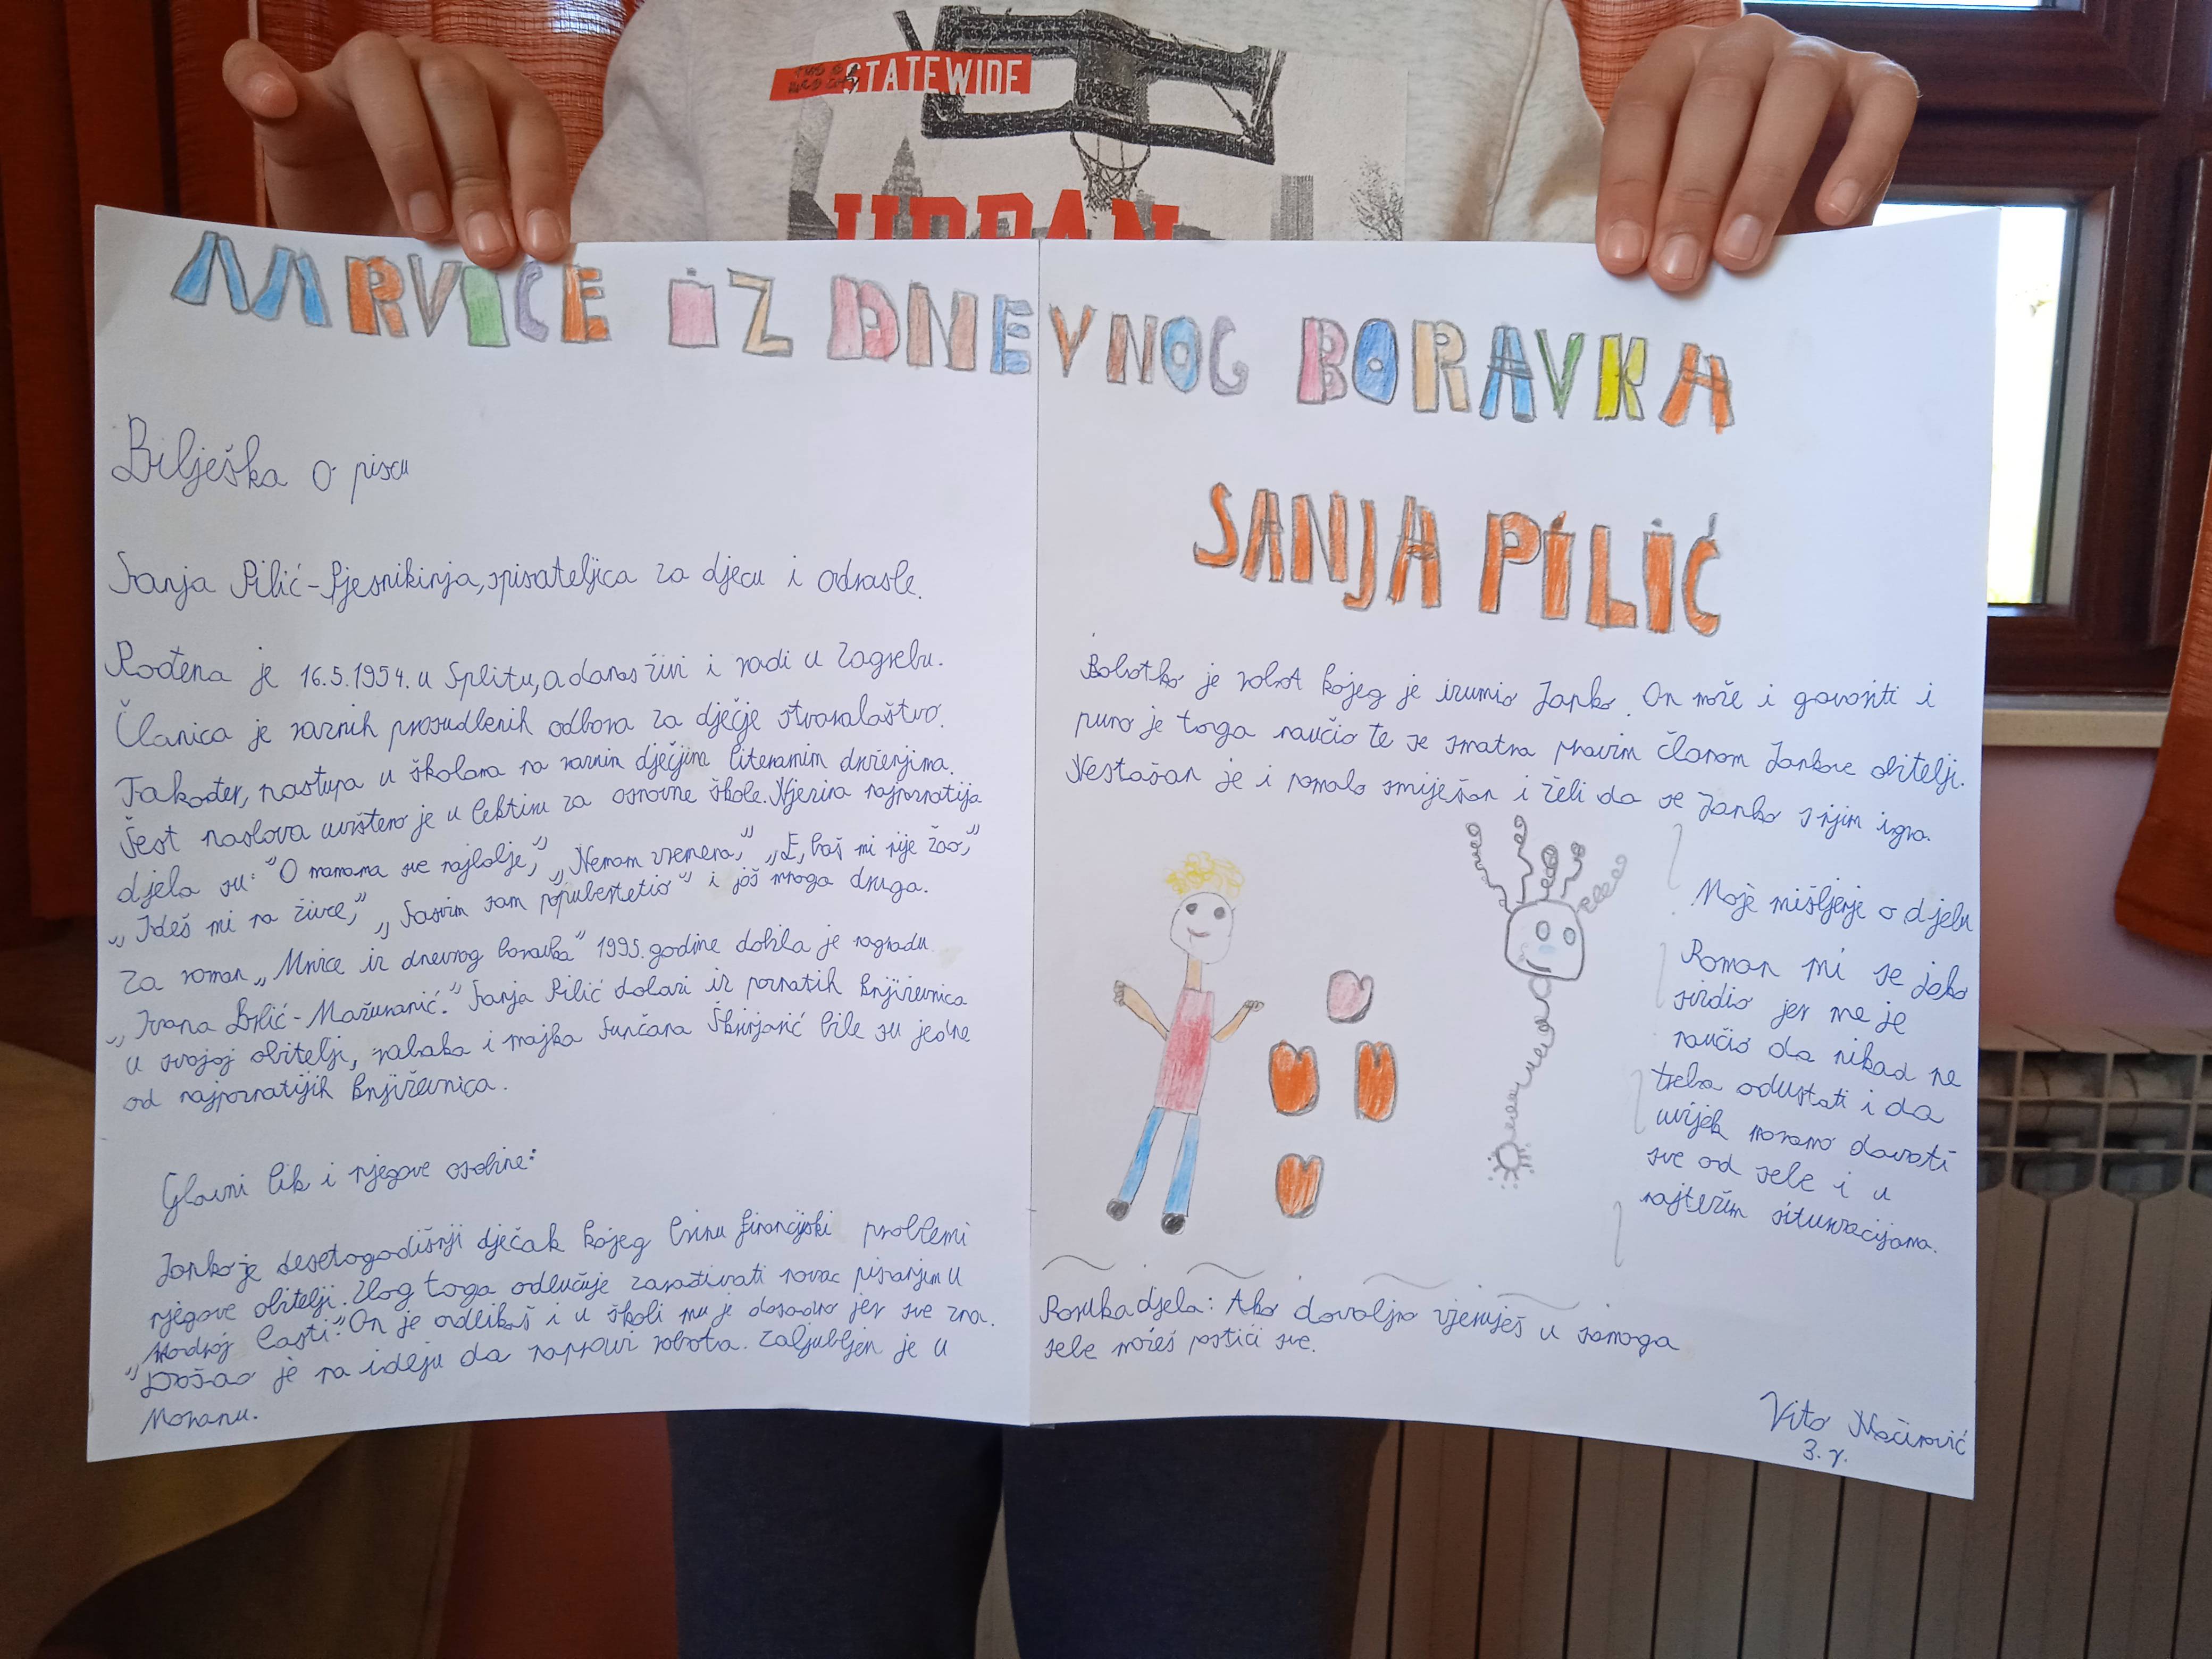 STATEWIDE
URBAN
MRVICE IZ DNEVNOG BORAVKA
SANJA PILIĆ
Bilješka o piscu
Sanja Pilić-Pjesnikinja, spisateljica za djecu i odrasle.
Rođena je 16.5.1954. u Splitu, a danas živi i radi u Zagrebu.
Članica je raznih prosudbenih odbora za dječje stvaralaštvo.
Također, nastupa u školama na raznim dječjim literarnim druženjima.
Šest naslova uvršteno je u lektiru za osnovne škole. Njezina najpoznatija
djela su: "O mamama sve najbolje", "Nemam vremena", "E, baš mi nije žao",
"Ideš mi na živce", "Sasvim sam popubertetio" i još mnoga druga.
Za roman "Mrvice iz dnevnog boravka" 1995. godine dobila je nagradu
"Ivana Brlić-Mažuranić." Sanja Pilić dolazi iz poznatih književnica
u svojoj obitelji, na baka i majka Sunčana Škrinjarić bile su jedne
od najpoznatijih književnica.
Glavni lik i njegove osobine:
Janko je desetogodišnji dječak kojeg brinu financijski problemi
njegove obitelji. Zbog toga odlučuje zarađivati novac pisanjem u
"Modroj lasti". On je odlikaš i u školi mu je dosadno jer sve zna.
Došao je na ideju da napravi robota. Zaljubljen je u
Moranu.
Bobotko je robot kojeg je izumio Janko. On može i govoriti i
puno je toga naučio te se smatra pravim članom Jankove obitelji.
Nestašan je i pomalo smiješan i želi da se Janko s njim igra.
Moje mišljenje o djelu
Roman mi se jako
svidio jer me je
naučio da nikad ne
treba odustati i da
uvijek moramo davati
sve od sebe i u
najtežim situacijama.
Poruka djela: Ako dovoljno vjeruješ u samoga
sebe možeš postići sve.
Vito
3. r.